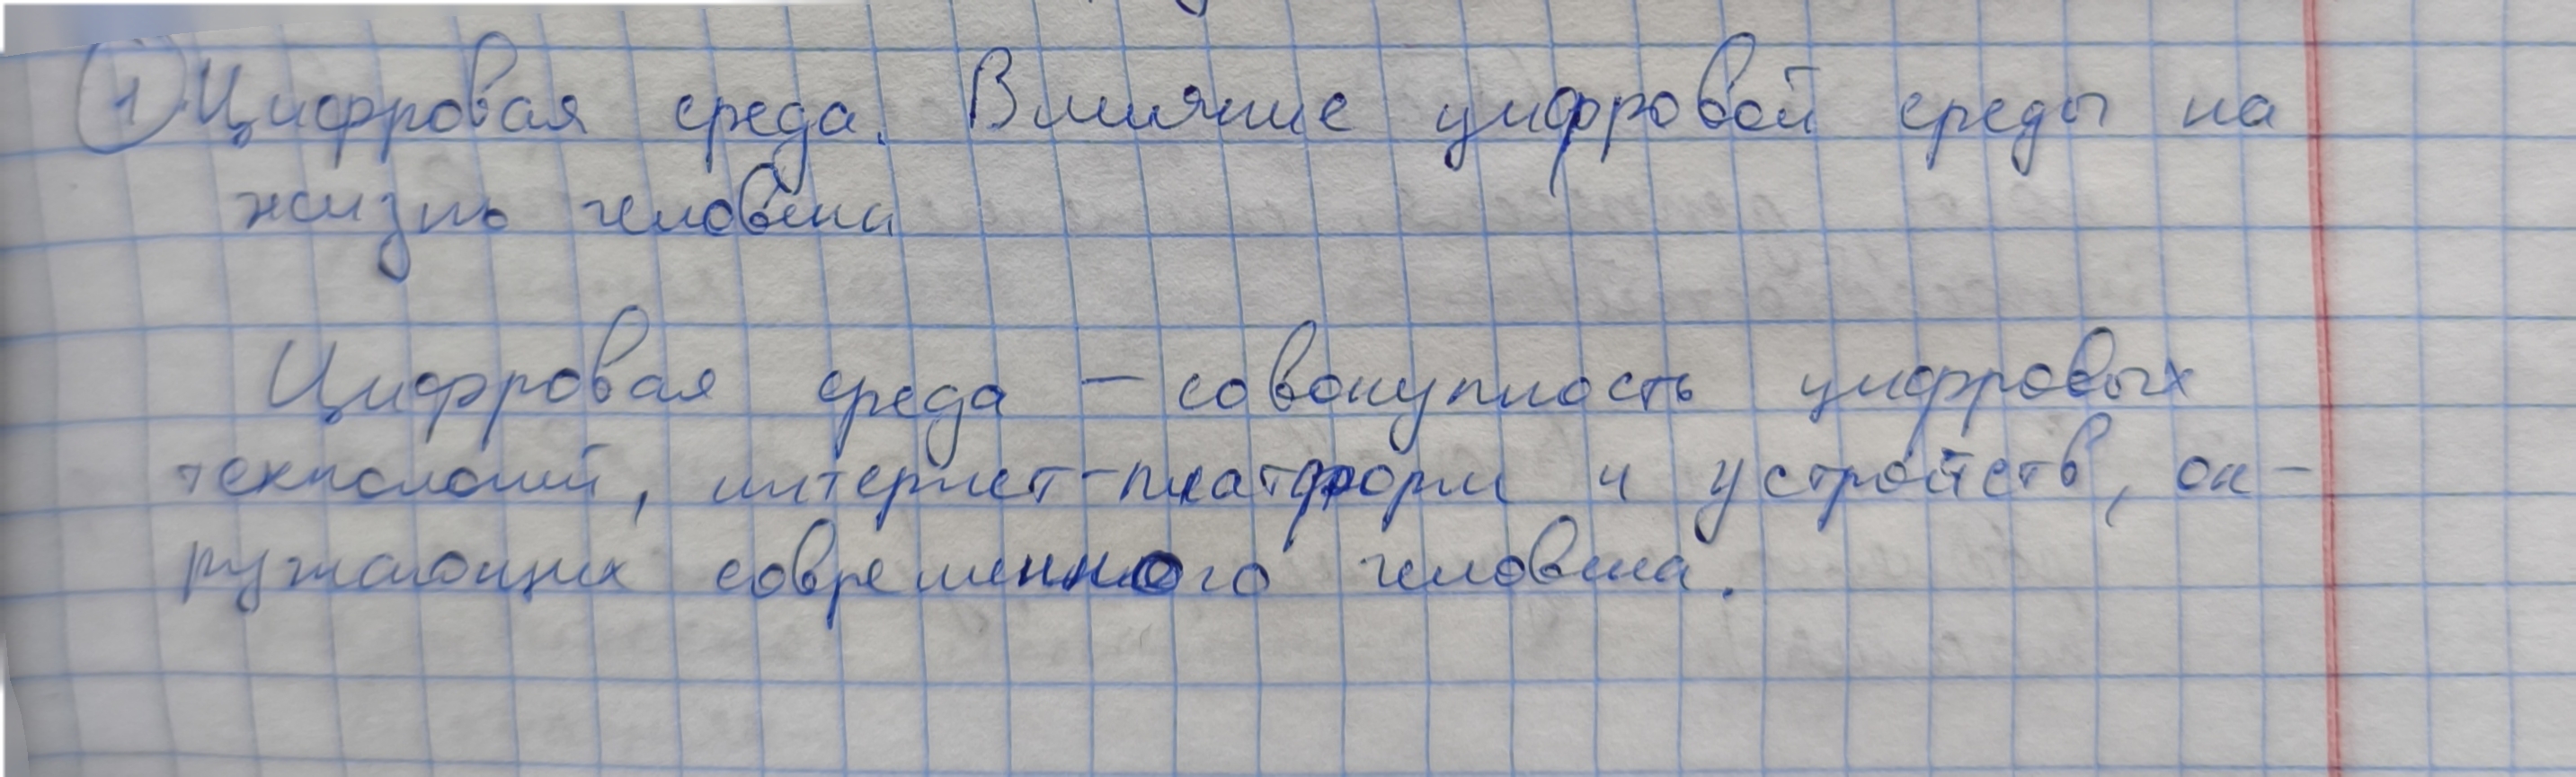 1. Цифровая среда. Влияние цифровой среды на
жизнь человека
Цифровая среда — совокупность цифровых
технологий, интернет-платформ и устройств, ок-
ружающих современного человека.